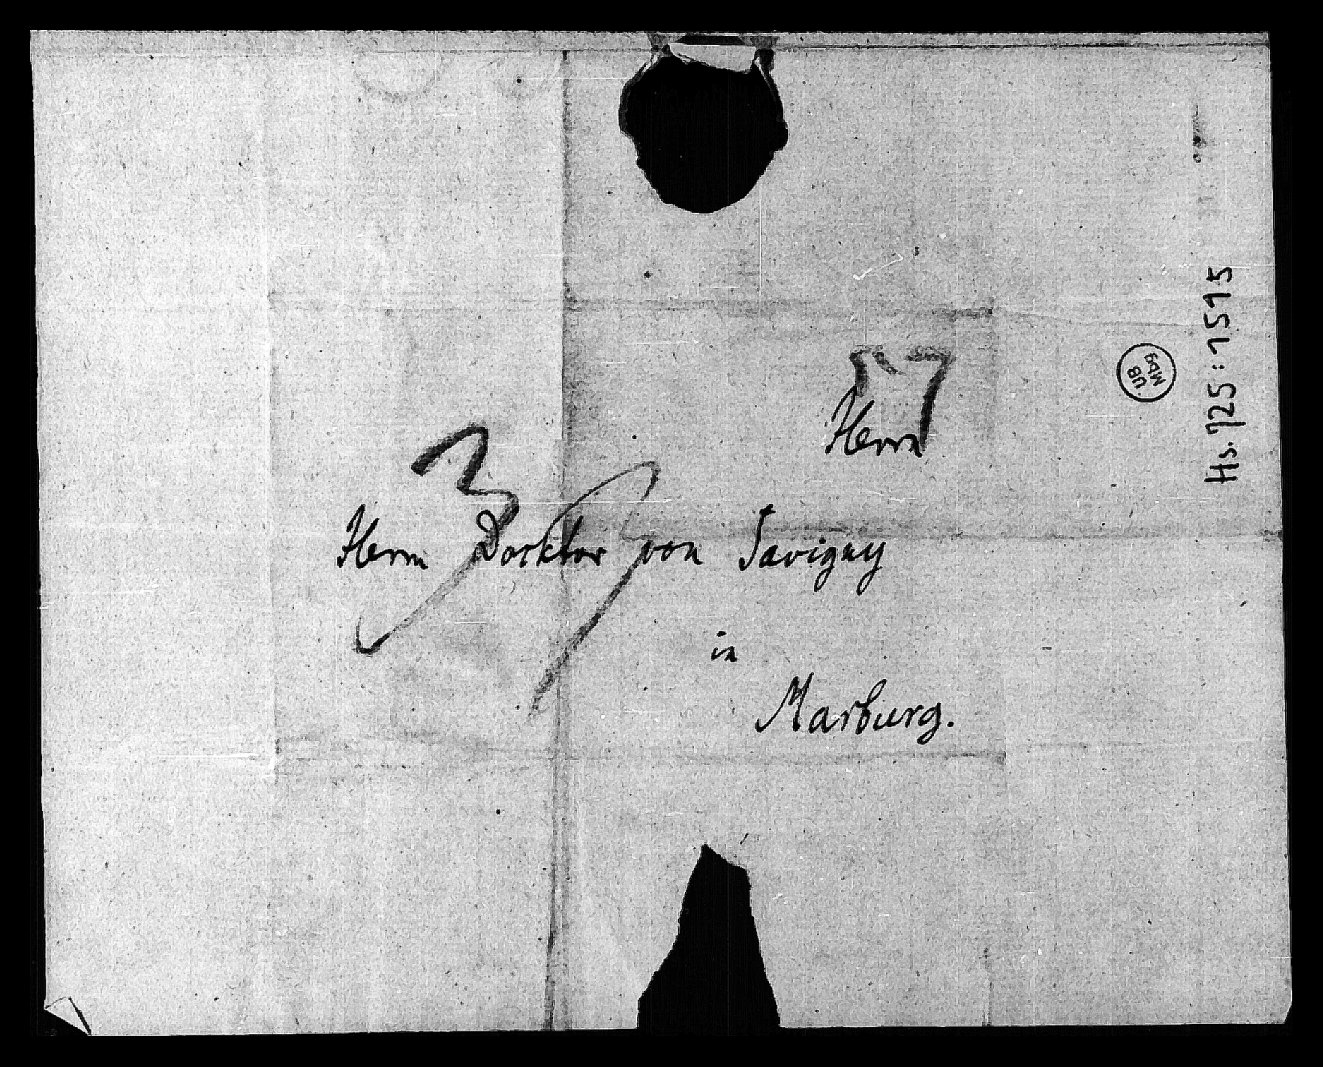 Herrn
Herrn Docktor von Savigny
in
Marburg.
3
Hs. 725:1515
UB
Mbg